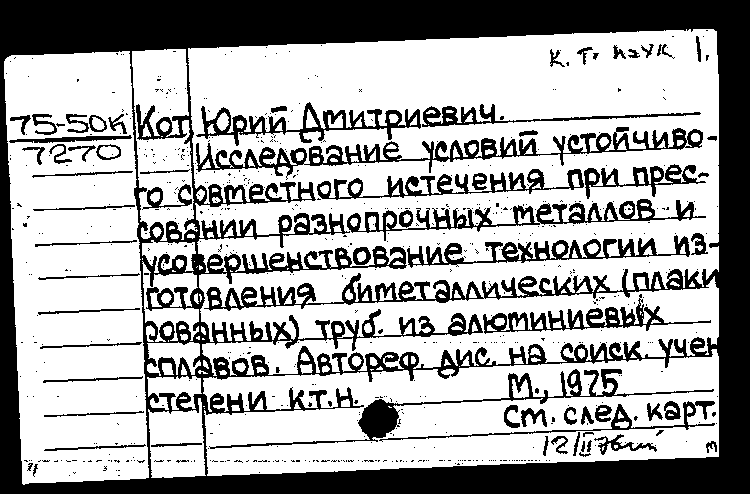 к. т. наук 1.
75-50к Кот, Юрий Дмитриевич.
7270 Исследование условий устойчиво-
го совместного истечения при прес-
совании разнопрочных металлов и
усовершенствование технологии из-
готовления биметаллических (плаки
рованных) труб. из алюминиевых
сплавов. Автореф. дис. на соиск. учен
степени к.т.н. М., 1975
См. след. карт.
12/II 76